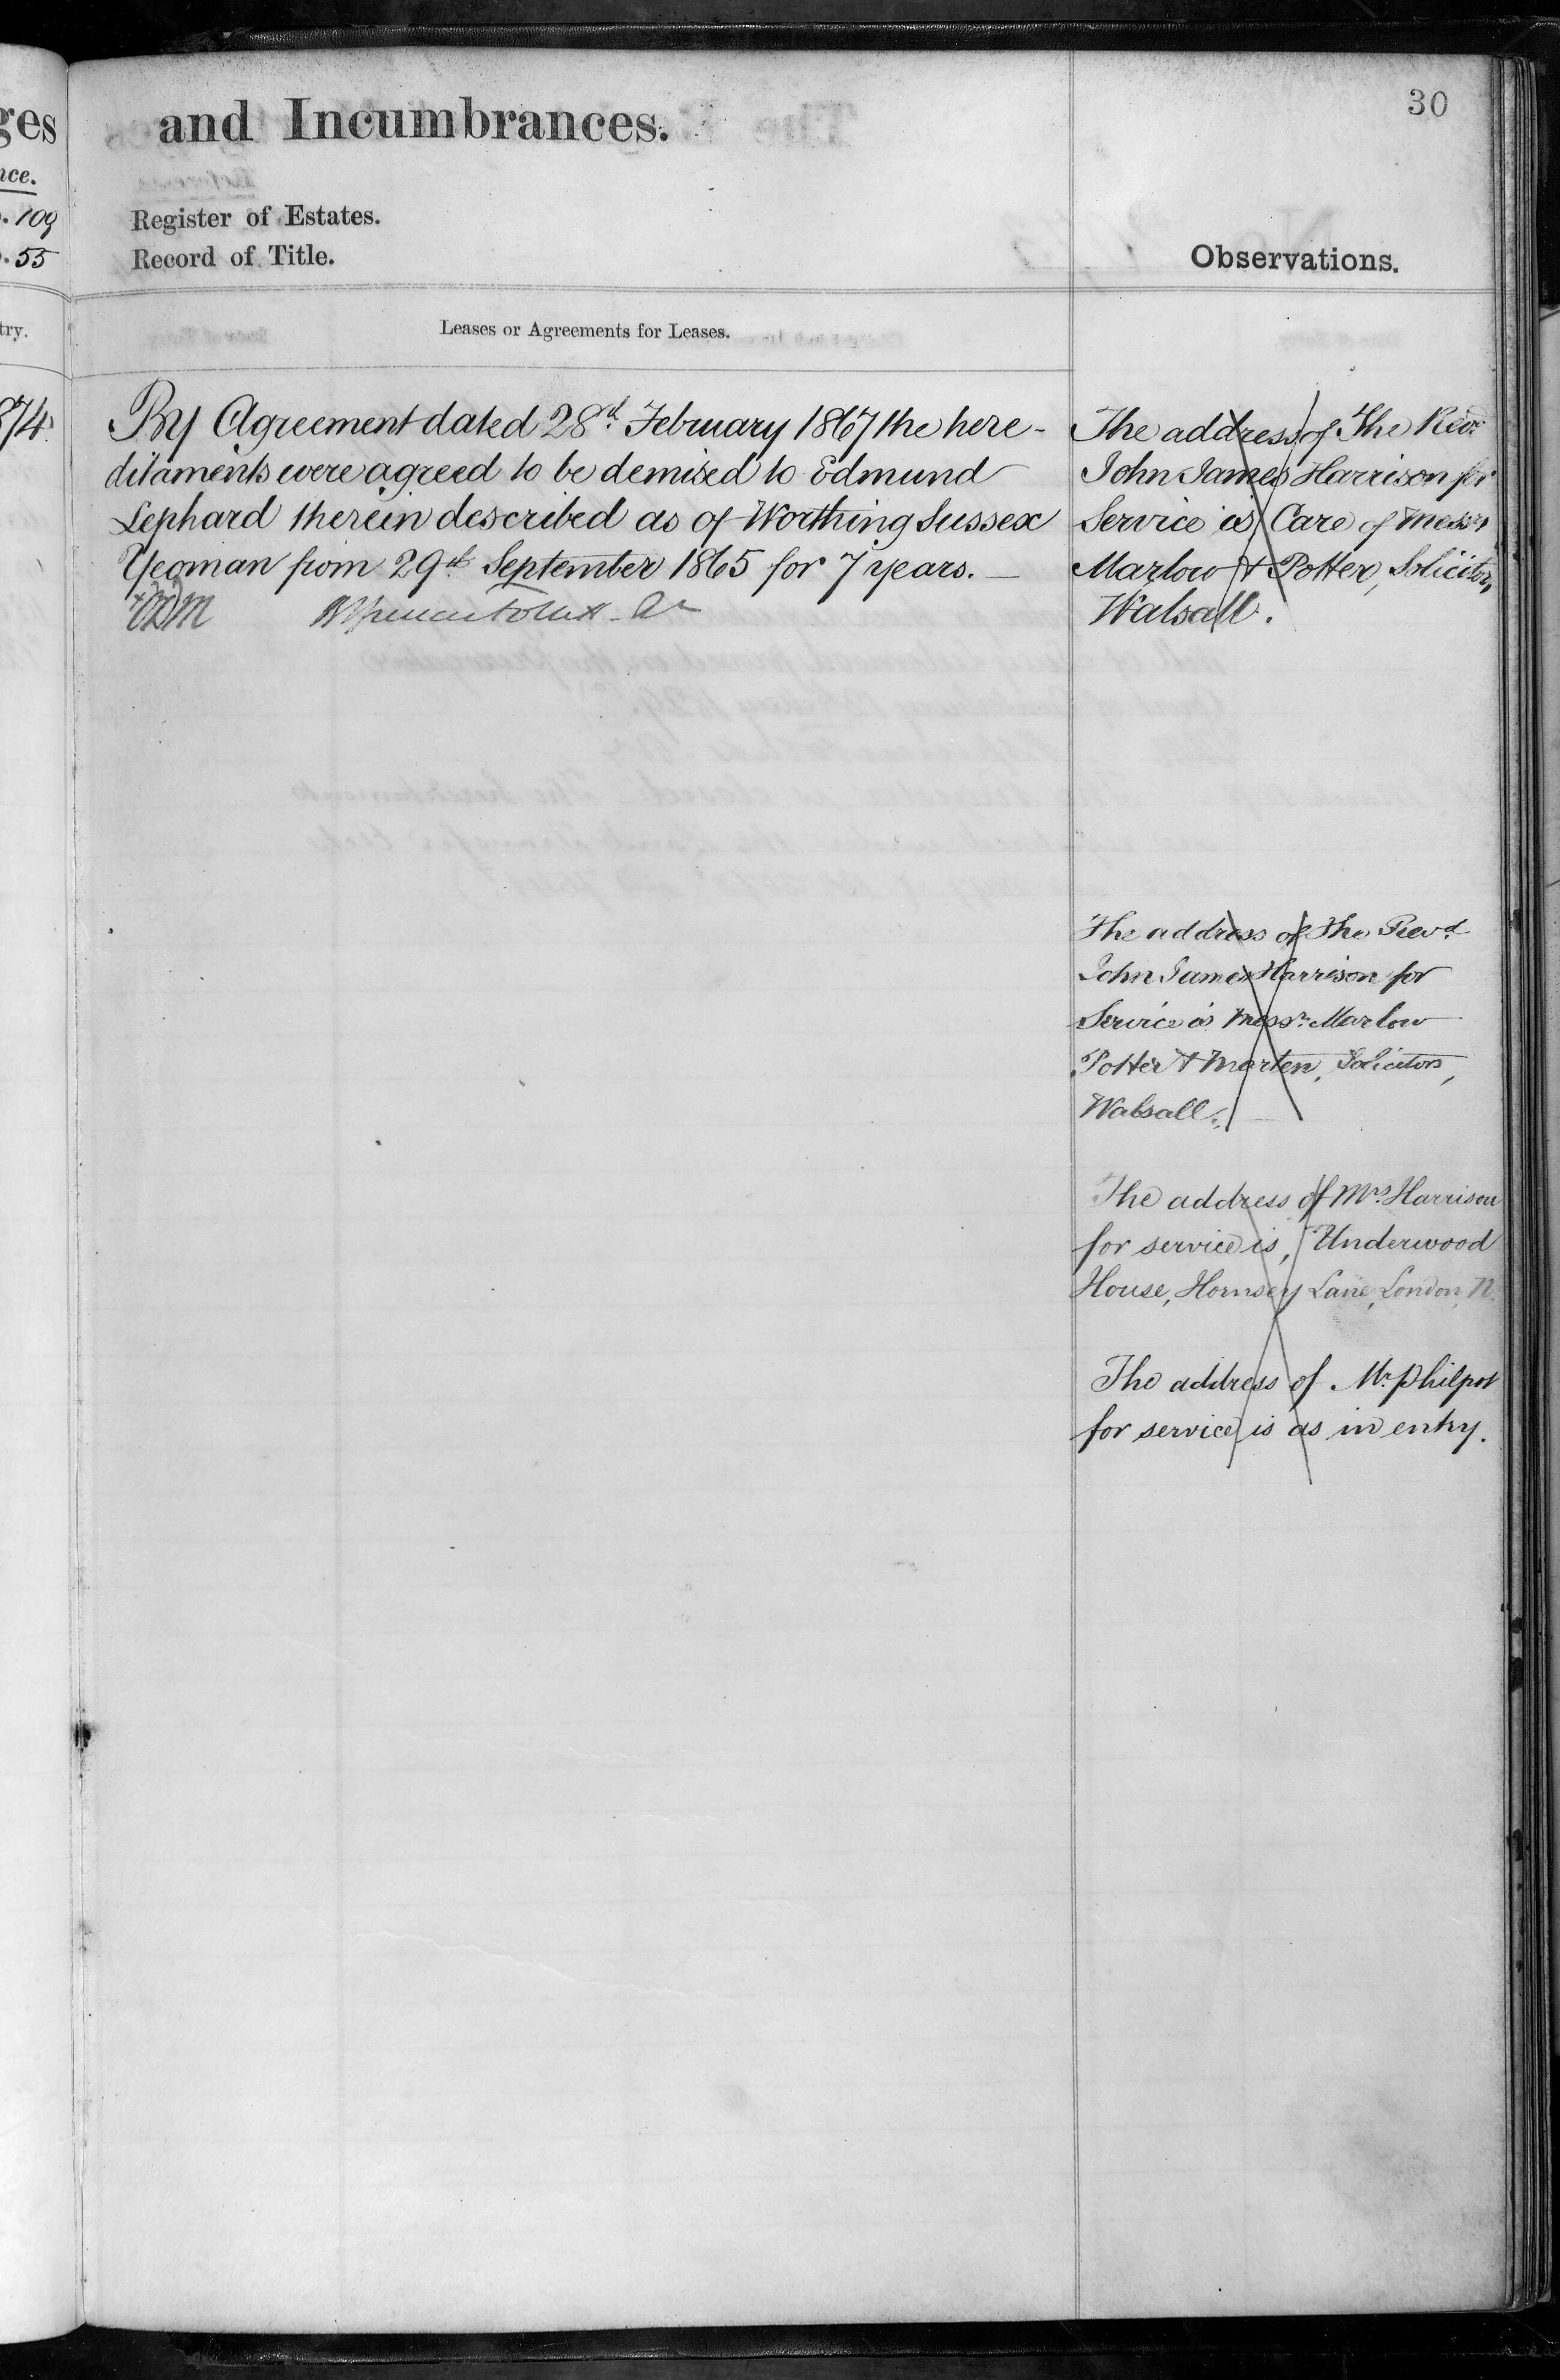 ges
nce.
. 109
. 55
try.
874.
30
and Incumbrances.
Register of Estates.
Record of Title.
Observations.
Leases or Agreements for Leases.
By Agreement dated 28th February 1867 the here-
ditaments were agreed to be demised to Edmund
Lephard therein described as of Worthing Sussex
Yeoman from 29th September 1865 for 7 years. —
The address of The Revd
John James Harrison for
Service is Care of Messrs
Marlow & Potter, Solicitors,
Walsall.
The address of The Revd
John James Harrison for
Service is Messrs Marlow
Potter & Marten, Solicitors,
Walsall.
The address of Mrs Harrison
for service is, Underwood
House, Hornsey Lane, London, N.
The address of Mr. Philpot
for service is as in entry.